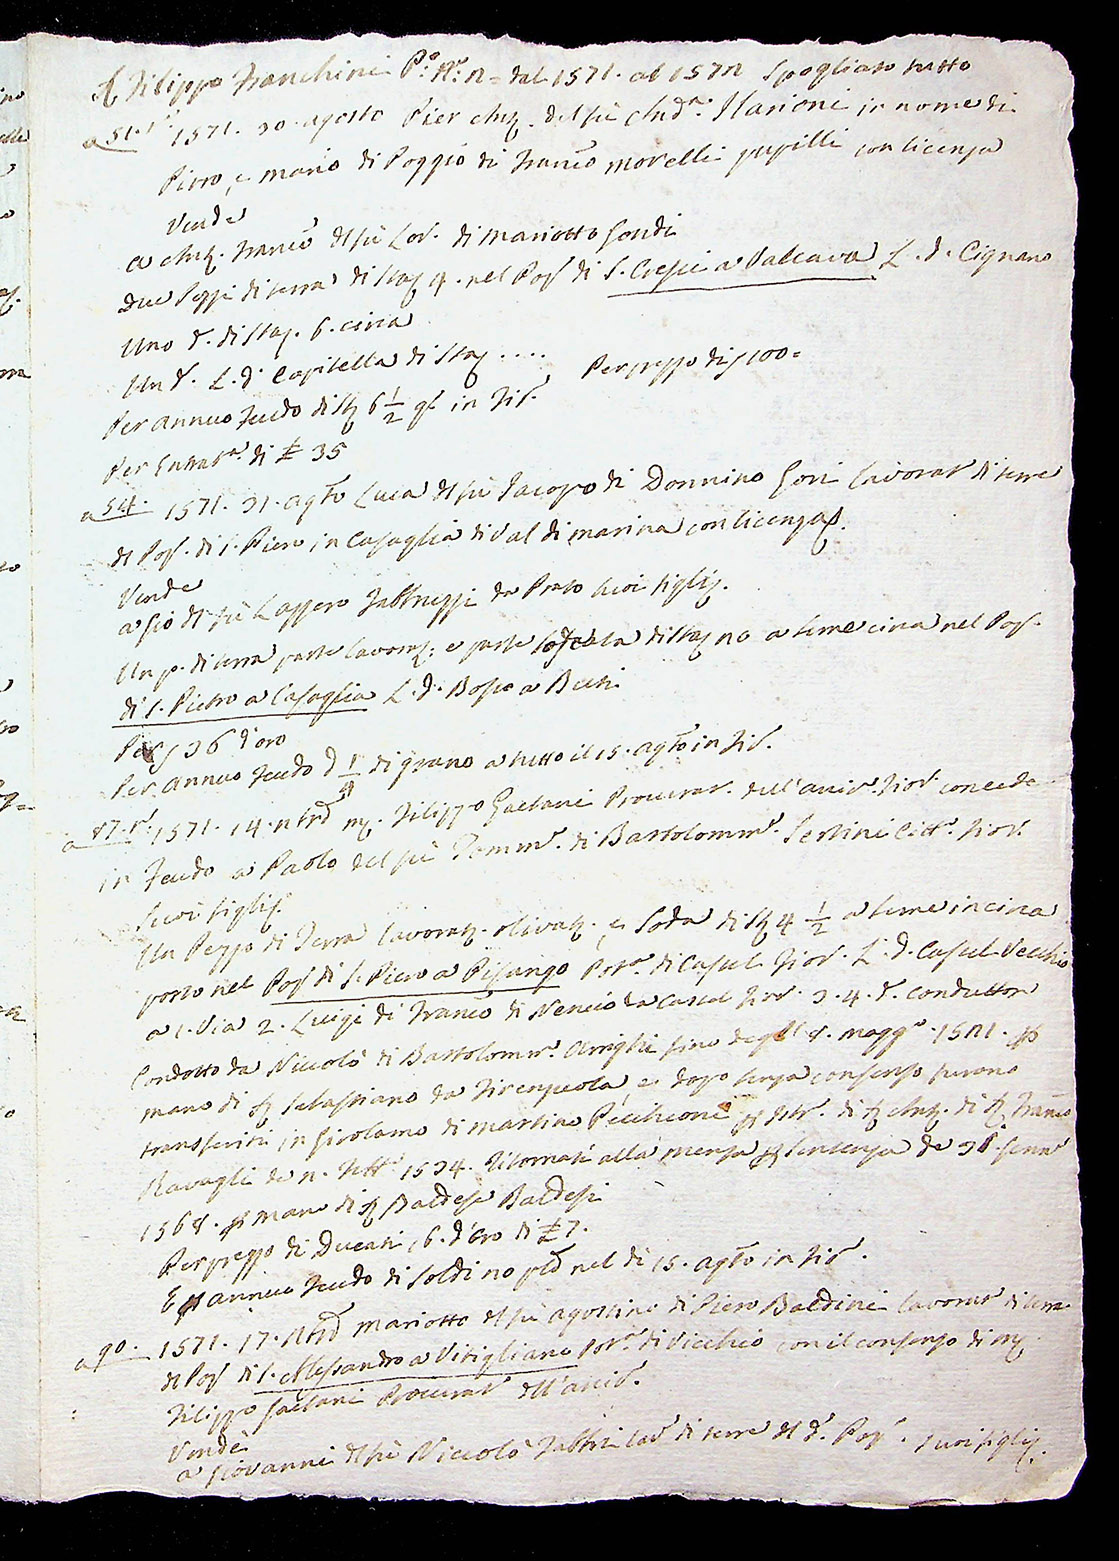 Filippo Franchini P.o N.o 2 = dal 1571. al 1572 Spogliato tutto
a 51.t 1571. 30. agosto Pier Ant. del fù And.a Ilarioni in nome di
Piero, e Mario di Poggio di Franco Morelli pupilli con licenza
Vende
a Ant. Franco del fù Lor. di Mariotto Gondi
Due Pezzi di terra di Staj 4. nel Pop di S. Cresci a Valcava L. d. Cignano
Uno d. di Staj. 6. circa
Un d. L. d. Capitella di Staj ....
Per annuo feudo di St 6 1/2 gr. in Fir. Per prezzo di 100 =
Per Entrat.a di £ 35
a 54. 1571. 31. Agto Luca del fù Jacopo di Donnino Gori lavorat di terre
del Pop. di S. Piero in Casaglia di Val di marina con licenza.
Vende
a Gio del fù Lazzero Fabbruzzi da Prato suoi figli.
Un p. di terra parte lavorat: e parte sodata di Staj 20 a seme circa nel Pop.
di S. Pietro a Casaglia L. d. Bosco a Becti
Per 36 d'oro
Per annuo feudo di grano a tutto il 15. Agto in Fir.
a 87.t: 1571. 14. Filippo Gaetani Procurat. dell' Arciv. Fior. concede
in feudo a Paolo del fù Tomm. di Bartolomm. Sertini Citt. Fior.
suoi figli.
Un Pezzo di Terra lavorat. olivat. e Soda di St 4 1/2 a seme incirca
posto nel Pop di S. Piero a Pisango Pot.a di Castel Fior. L. d. Castel Vecchio
a 1. Via 2. Luigi di Franco di Nencio da Castel Fior. 3. 4. d. Conduttore
Condotto da Niccolò di Bartolomm. Arrighi fino degl' 8. Magg. 1521. p
mano di Sr Sebastiano da Firenzuola, e dopo senza consenso furono
transferiti in Girolamo di Martino Pecchioni p Istr. di Sr Ant. di Sr Franco
Ravagli de 2. Sett. 1534. Ritornati alla mensa p Sentenza de 31. Genn.
1568. p mano di Sr Baldese Baldesi
Per prezzo di Ducati 6. d'oro di £ 7.
E p annuo feudo di Soldi 20 nel dì 15. Agto in Fir.
a 90. 1571. 17. Mariotto del fù Agostino di Piero Baldini lavorat di terra
del Pop di S. Alessandro a Vitigliano Pot.a di Vicchio con il consenso di
Filippo Gaetani Procurat dell' Arciv.
Vende
a Giovanni del fù Niccolò Fabbri lav di terre del d. Pop. suoi figli.